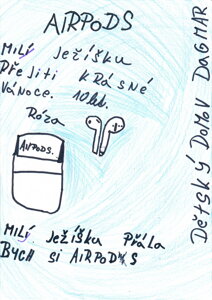 AiRPODS
MiLÝ JEŽÍŠKU
PŘEJiTi KRÁSNÉ
VÁNOCE. 10let.
RÓZA
AiRPODS.
MiLÝ JEŽÍŠKU PŘÁLA
BYCH Si AiRPODS
DĚTSKÝ DOMOV DAGMAR